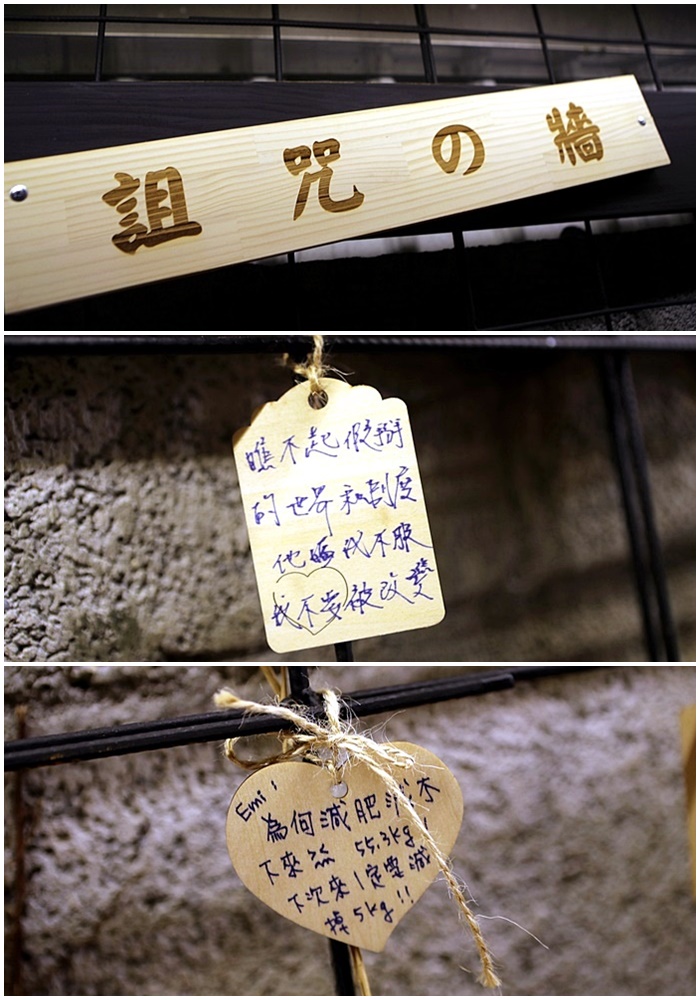 詛咒の牆
瞧不起假掰
的世界和制度
他媽我不服
我不要被改變
Emi!
為何減肥減不
下來 55.3kg!
下次來1定要減
掉5kg!!